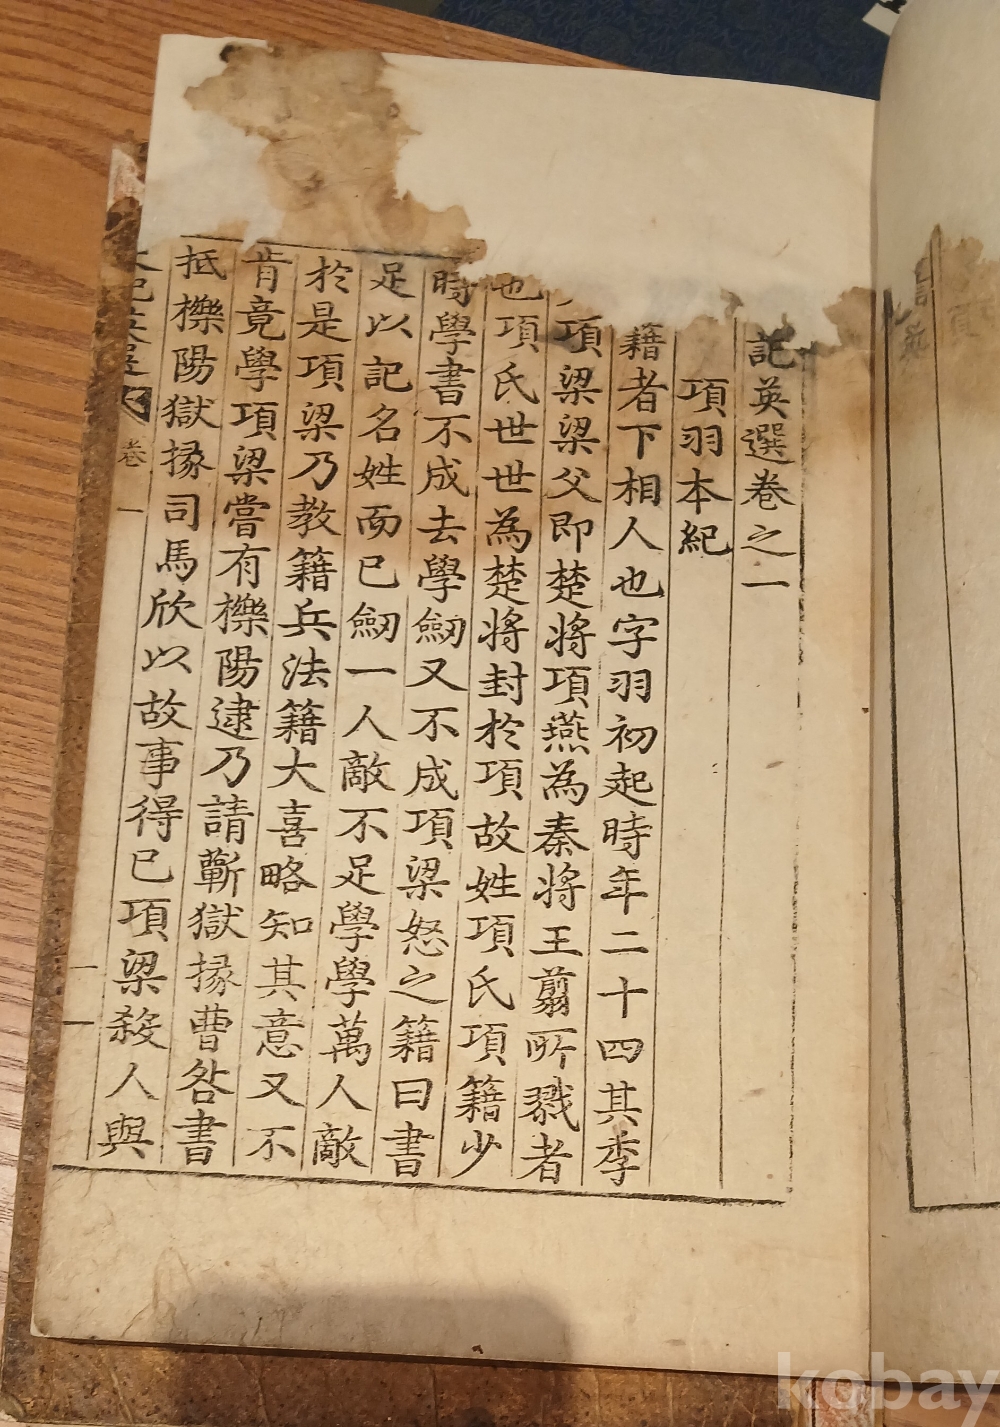 記英選卷之一
項羽本紀
籍者下相人也字羽初起時年二十四其季
項梁梁父即楚將項燕為秦將王翦所戮者
也項氏世世為楚將封於項故姓項氏項籍少
時學書不成去學劒又不成項梁怒之籍曰書
足以記名姓而已劒一人敵不足學學萬人敵
於是項梁乃教籍兵法籍大喜略知其意又不
肯竟學項梁嘗有櫟陽逮乃請蘄獄掾曹咎書
抵櫟陽獄掾司馬欣以故事得已項梁殺人與
卷一
一
kobay